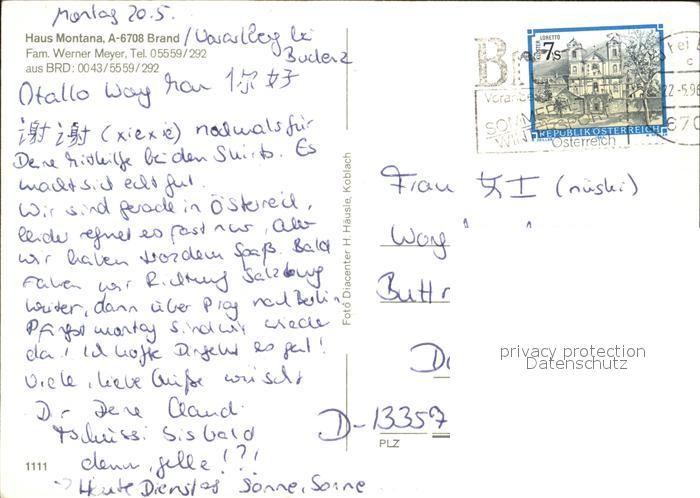 Montag 20.5.
Haus Montana, A-6708 Brand / Vorarlberg bei
Fam. Werner Meyer, Tel. 05559/292 Budenz
aus BRD: 0043/5559/292
Wang 你好
谢谢 (xiexie) nochmals für
Deine Mithilfe bei den Shirts. Es
macht sich echt gut.
Wir sind gerade in Österreich,
leider regnet es fast nur, aber
wir haben trotzdem Spaß. Bald
fahren wir Richtung Salzburg
weiter, dann über Prag nach Berlin.
Pfingstmontag sind wir wieder
da! Ich hoffe Dir geht es gut!
Viele, liebe Grüße wünscht
Dir Deine Claudi
Tschüssi bis bald
denn, gelle!?!
Heute Dienstag Sonne, Sonne
1111
Foto Diacenter H. Häusle, Koblach
LORETTO
7 S
REPUBLIK ÖSTERREICH
Österreich
SOMMER
WINTER
22.-5.96
670
Frau 女士 (nüshi)
Wang
Buttr
D-13357
PLZ
privacy protection
Datenschutz